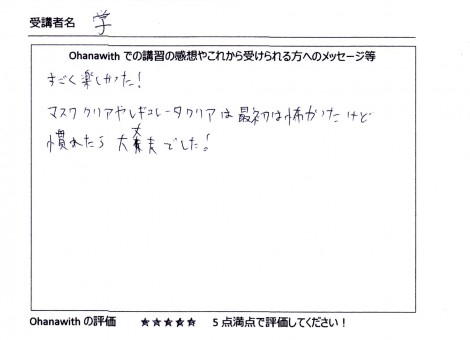 受講者名 学
Ohanawith での講習の感想やこれから受けられる方へのメッセージ等
すごく楽しかった!
マスククリアやレギュレータクリアは最初は怖かったけど
慣れたら大丈夫でした!
Ohanawith の評価 ★★★★★ 5 点満点で評価してください!